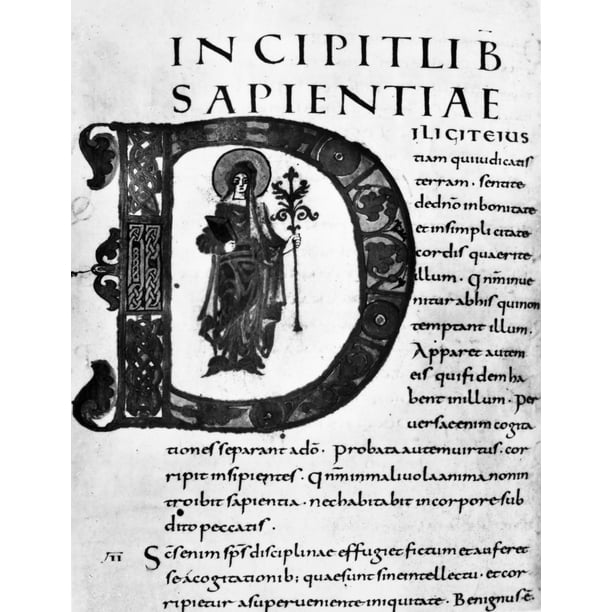 INCIPIT LIB
SAPIENTIAE
DILIGITE IUS
tiam qui iudicatis
terram · sentite
de dn̄o in bonitate
et in simplicitate
cordis quaerite
illum · Qn̄m inue
nitur ab his qui non
temptant illum ·
Apparet autem
eis qui fidem ha
bent in illum · Per
versae enim cogita
tiones separant a dō · Probata autem virtus · cor
ripit insipientes · Qn̄m in malivola anima non in
troibit sapientia · nec habitabit in corpore sub
dito peccatis ·
II Sc̄s enim sp̄s disciplinae effugiet fictum et auferet
se a cogitationib; quae sunt sine intellectu · et cor
ripietur a superveniente iniquitate · Benignus ē